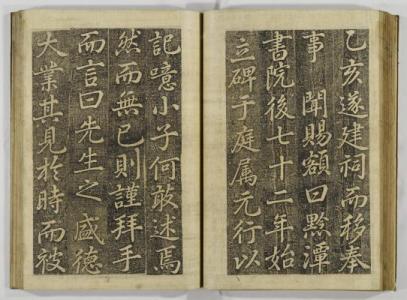 乙亥遂建祠而移奉
事　聞賜額曰黟潭
書院後七十二年始
立碑子庭属元行以
記噫小子何敢述焉
然而無已則謹拜手
而言曰先生之盛德
大業其見於時而被